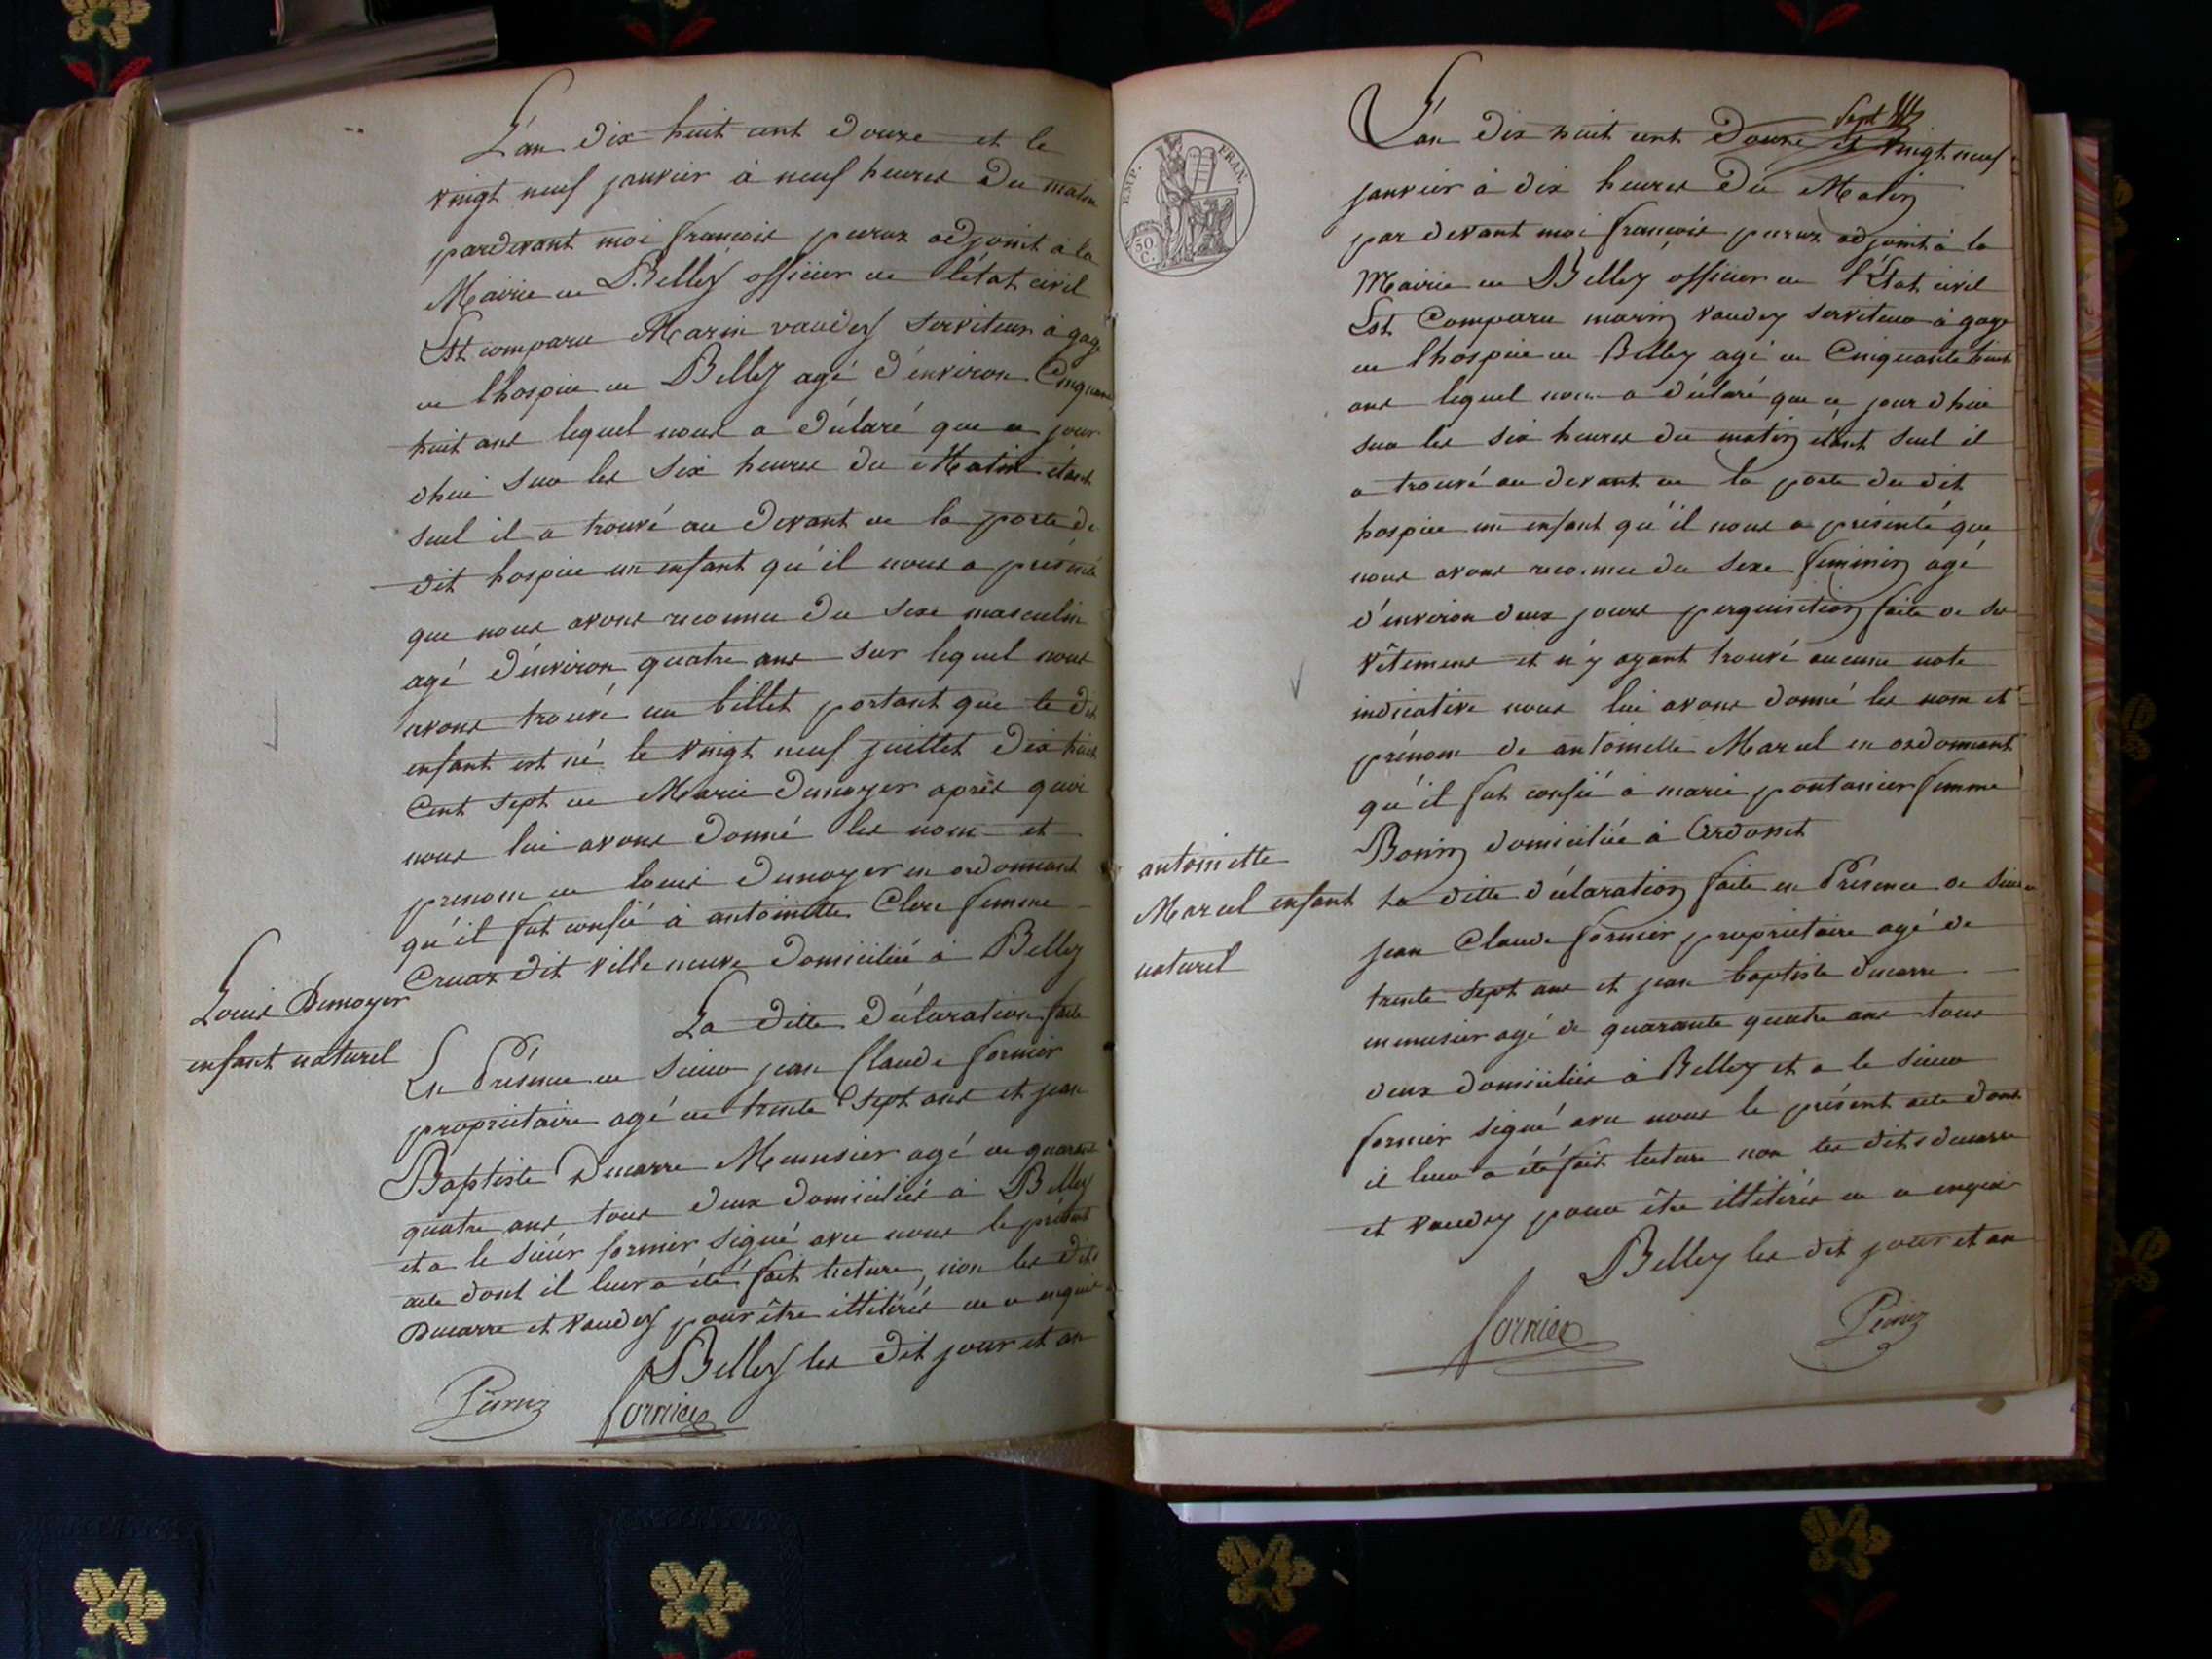 L'an dix huit cent douze et le
vingt neuf janvier à neuf heures du matin
pardevant moi françois peruz adjoint à la
Mairie de Belley officier de l'état civil
Est comparu Marin vaudey serviteur à gage
de l'hospice de Belley agé d'environ Cinquante
huit ans lequel nous a déclaré que ce jour
dhui sur les six heures du Matin étant
seul il a trouvé au devant de la porte du
dit hospice un enfant qu'il nous a présenté
que nous avons reconnu du sexe masculin
agé d'environ quatre ans sur lequel nous
avons trouvé un billet portant que le dit
enfant est né le vingt neuf juillet dix huit
Cent sept de Marie Dunoyer après quoi
nous lui avons donné les nom et
prenom de louis Dunoyer en ordonnant
qu'il fut confié à antoinette Clerc femme
Cruaz dit ville neuve domiciliée à Belley
Louis Dunoyer
enfant naturel
La ditte déclaration faite
En Présence de sieur jean Claude fornier
propriétaire agé de trente sept ans et jean
Baptiste Ducarre Menusier agé de quarante
quatre ans tous deux domiciliés à Belley
et a le sieur fornier signé avec nous le présent
acte dont il leur a été fait lecture, non les dits
Ducarre et vaudey pour être illitérés de ce enquis
Belley les dit jour et an
Peruz fornier
EMP. FRAN.
50 C.
L'an dix huit cent douze et vingt neuf
janvier à dix heures du Matin
par devant moi françois peruz adjoint à la
Mairie de Belley officier de l'État civil
Est Comparu marin vaudey serviteur à gage
de l'hospice de Belley agé de Cinquante huit
ans lequel nous a déclaré que ce jour dhui
sur les six heures du matin étant seul il
a trouvé au devant de la porte du dit
hospice un enfant qu'il nous a présenté que
nous avons reconnu du sexe féminin agé
d'environ deux jours perquisition faite de ses
vêtemens et n'y ayant trouvé aucune note
indicative nous lui avons donné les nom et
prénom de antoinette Marcel en ordonnant
qu'il fut confié à marie pontanier femme
Bonin domiciliée à
antoinette
Marcel enfant
naturel
La ditte déclaration faite en Présence de sieur
jean Claude fornier propriétaire agé de
trente sept ans et jean baptiste ducarre
menusier agé de quarante quatre ans tous
deux domiciliés à Belley et a le sieur
fornier signé avec nous le présent acte dont
il leur a été fait lecture non les dits ducarre
et vaudey pour être illitérés de ce enquis
Belley les dit jour et an
fornier Peruz